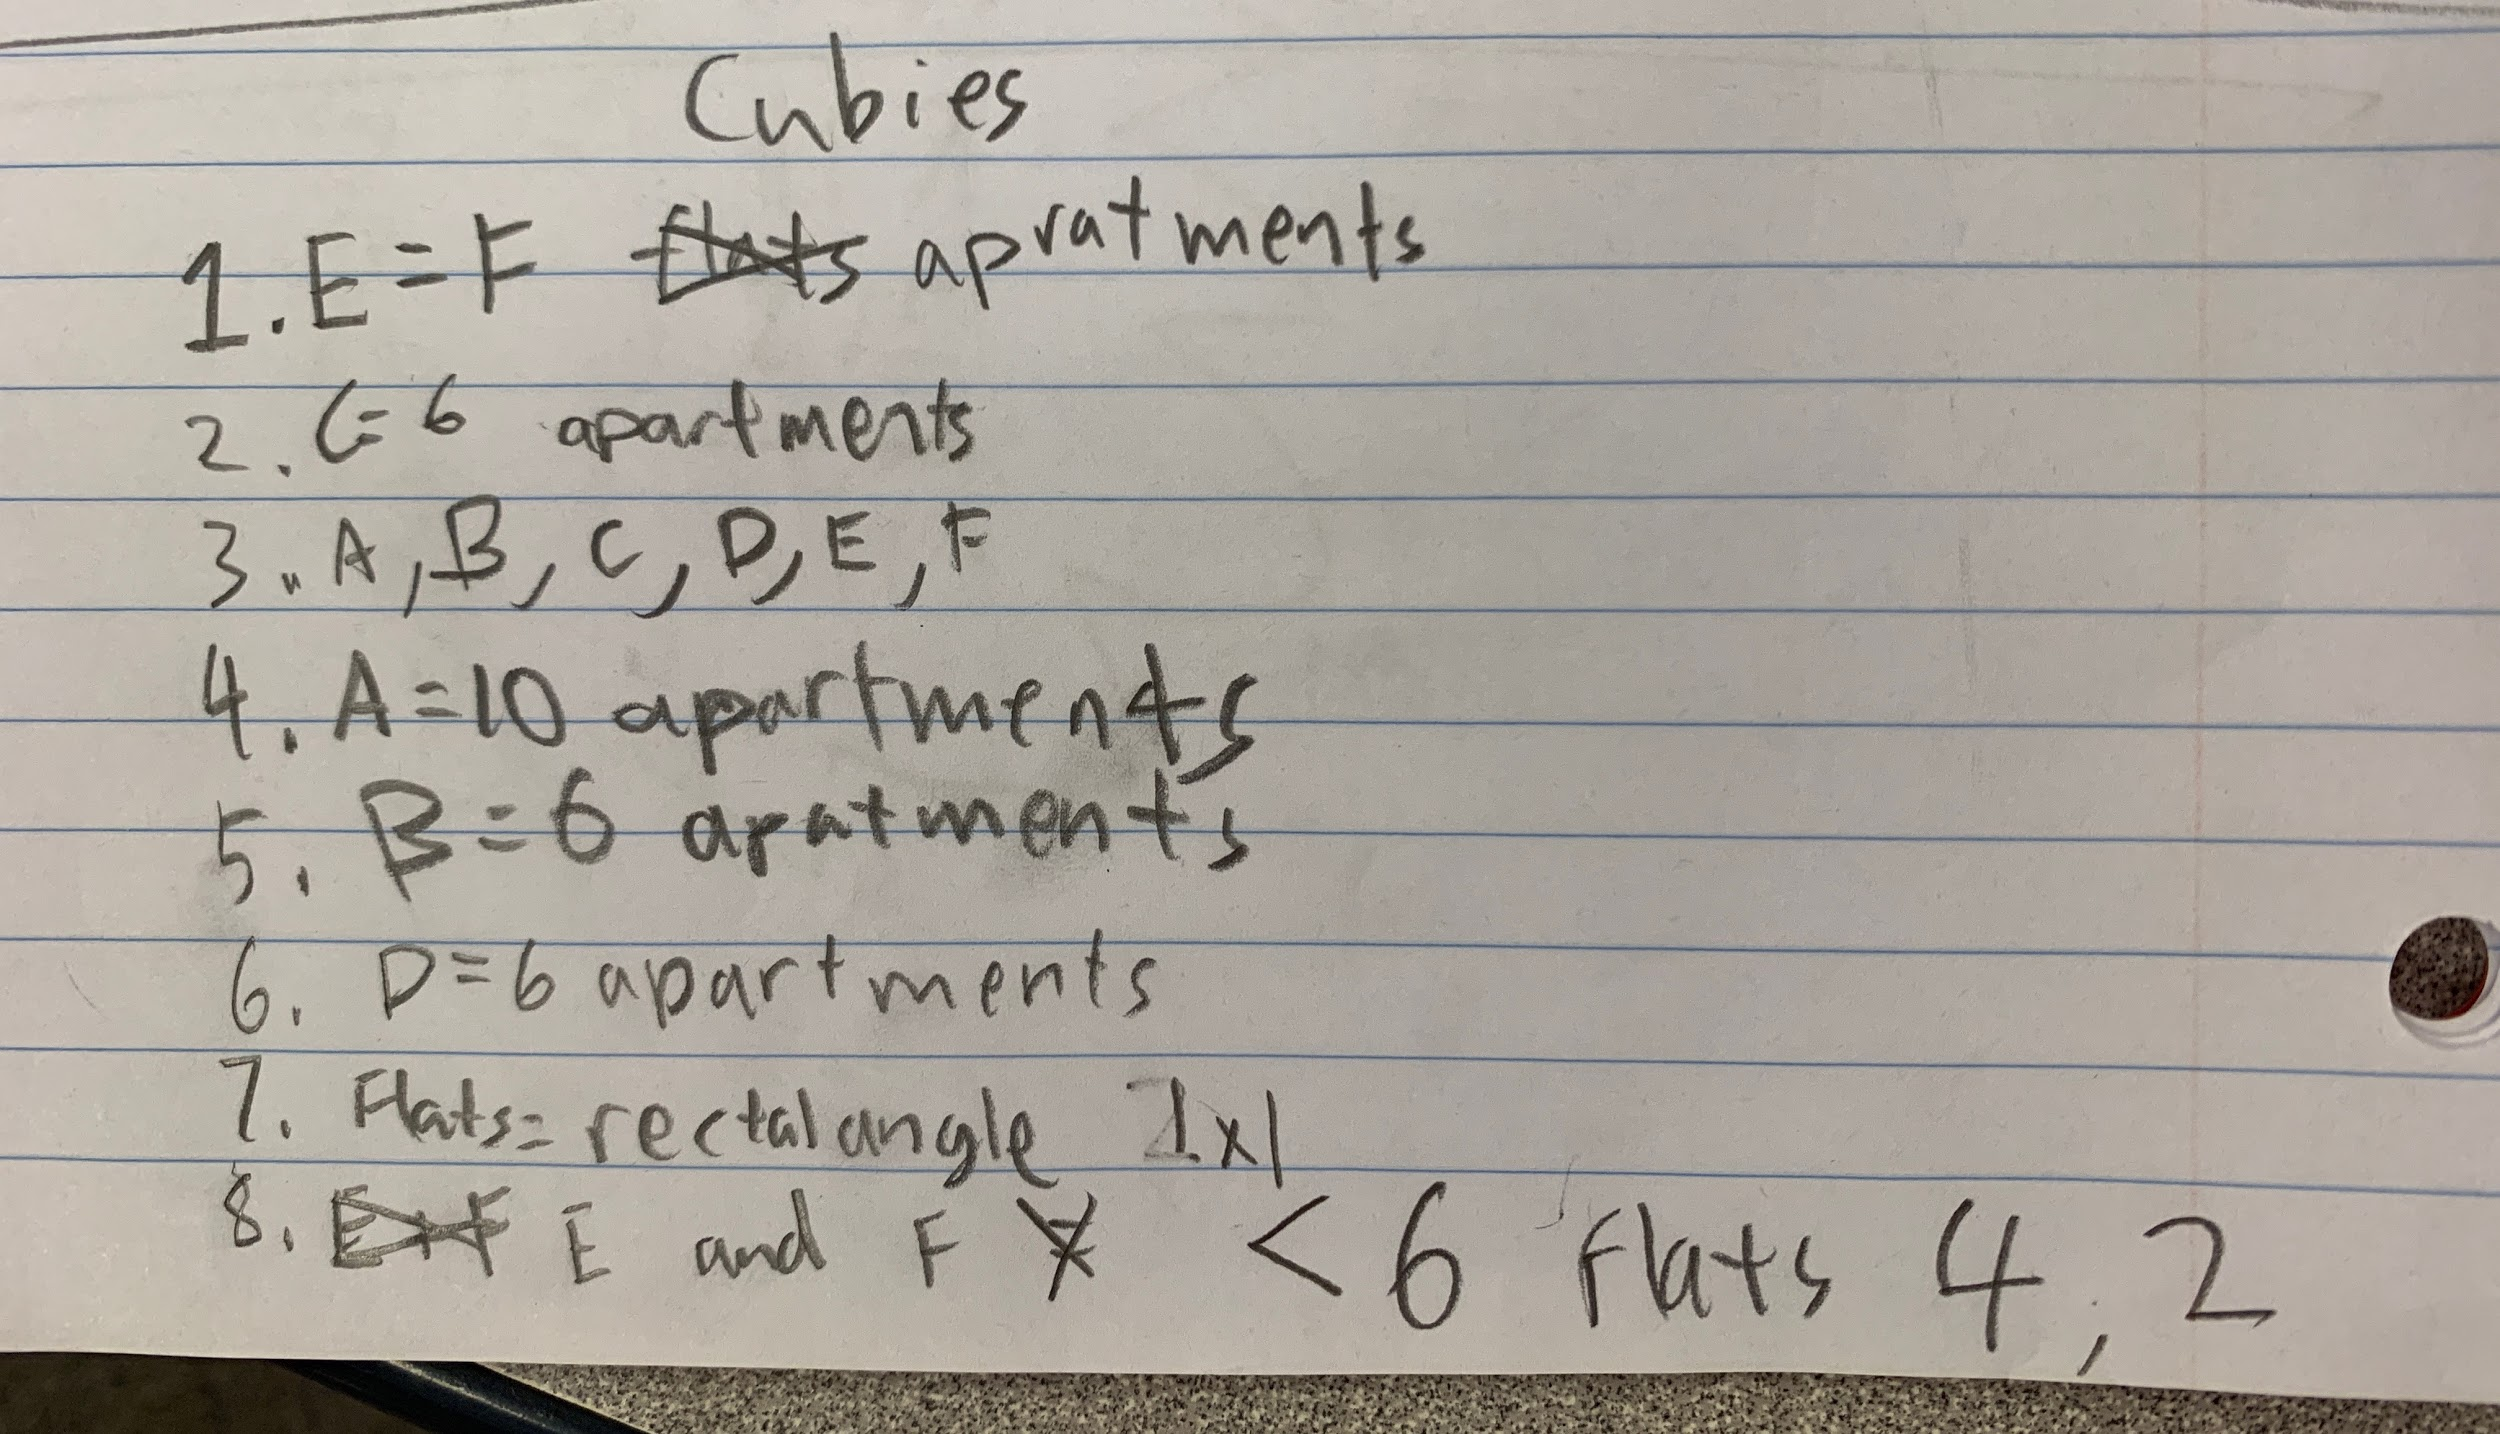 Cubies
1. E = F flats apratments
2. C = 6 apartments
3. A, B, C, D, E, F
4. A = 10 apartments
5. B = 6 apatments
6. D = 6 apartments
7. Flats = rectalangle 1x1
8. E and F < 6 flats 4, 2